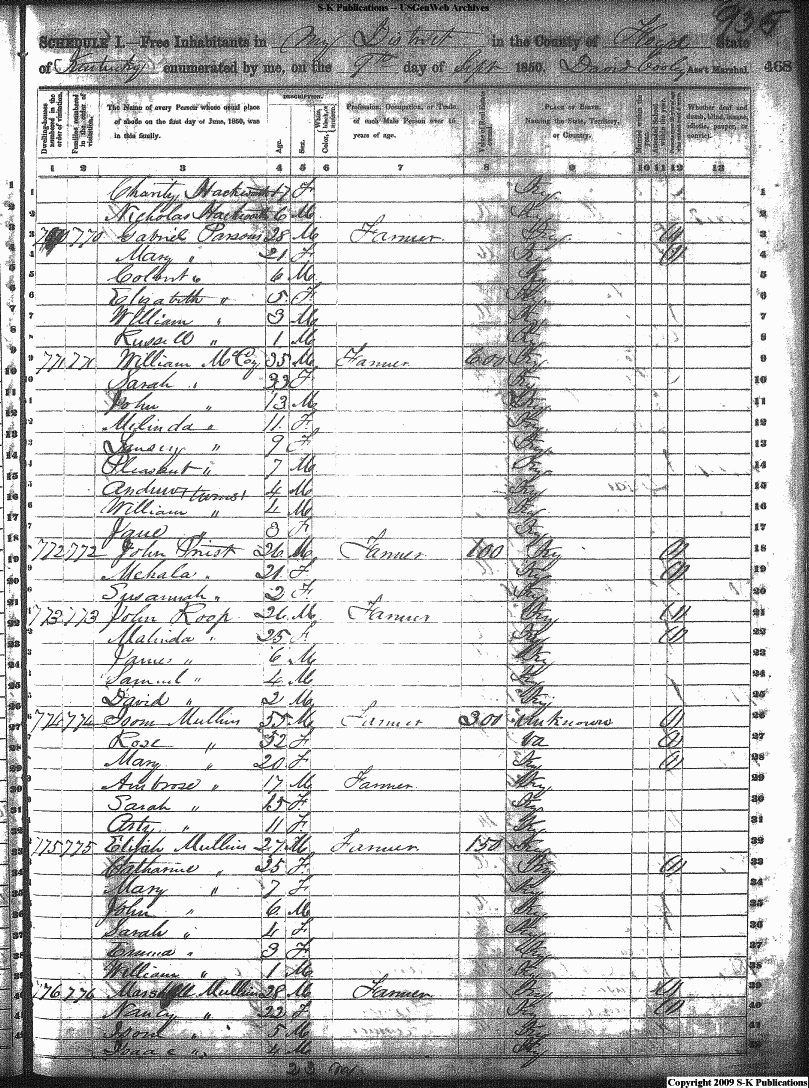 S-K Publications -- USGenWeb Archives
935
SCHEDULE I.—Free Inhabitants in My District in the County of Floyd State
of Kentucky enumerated by me, on the 9th day of Sept 1850. David Cooley Ass't Marshal. 468
Dwelling-houses numbered in the order of visitation. Families numbered in the order of visitation. The Name of every Person whose usual place of abode on the first day of June, 1850, was in this family. DESCRIPTION. Age. Sex. Color, White, black, or mulatto. Profession, Occupation, or Trade of each Male Person over 15 years of age. Value of Real Estate owned. PLACE OF BIRTH. Naming the State, Territory, or Country. Married within the year. Attended School within the year. Whether deaf and dumb, blind, insane, idiotic, pauper, or convict.
1 2 3 4 5 6 7 8 9 10 11 12 13
1 Charity Hackworth 17 F Ky 1
2 Nicholas Hackworth 6 M Ky 2
3 770 770 Gabriel Parsons 28 M Farmer Ky 3
4 Mary " 21 F Ky 4
5 " 6 M Ky 5
6 Elizabeth " 5 F Ky 6
7 William " 3 M Ky 7
8 Russell " 1 M Ky 8
9 771 771 William McCoy 35 M Farmer 600 Ky 9
10 Sarah " 33 F Ky 10
11 John " 13 M Ky 11
12 Melinda " 11 F Ky 12
13 " 9 F Ky 13
14 Pleasant " 7 M Ky 14
15 Andrew twins 4 M Ky 15
16 William " 4 M Ky 16
17 Jane " 3 F Ky 17
18 772 772 John 26 M Farmer 100 Ky 18
19 Mehala " 21 F Ky 19
20 Susannah " 2 F Ky 20
21 773 773 John Roop 26 M Farmer Ky 21
22 Malinda " 25 F Ky 22
23 James " 6 M Ky 23
24 Samuel " 4 M Ky 24
25 David " 2 M Ky 25
26 774 774 Isom Mullins 55 M Farmer 300 Unknown 26
27 Rose " 52 F Va 27
28 Mary " 20 F Ky 28
29 Ambrose " 17 M Farmer Ky 29
30 Sarah " 15 F Ky 30
31 Arty " 11 F Ky 31
32 775 775 Elijah Mullins 27 M Farmer 150 Ky 32
33 Catharine " 25 F Ky 33
34 Mary " 7 F Ky 34
35 John " 6 M Ky 35
36 Sarah " 4 F Ky 36
37 Emma " 3 F Ky 37
38 William " 1 M Ky 38
39 776 776 Marshall Mullins 28 M Farmer Ky 39
40 Nancy " 22 F Ky 40
41 Isom " 5 M Ky 41
42 Isaac " 4 M Ky 42
23 m
Copyright 2009 S-K Publications